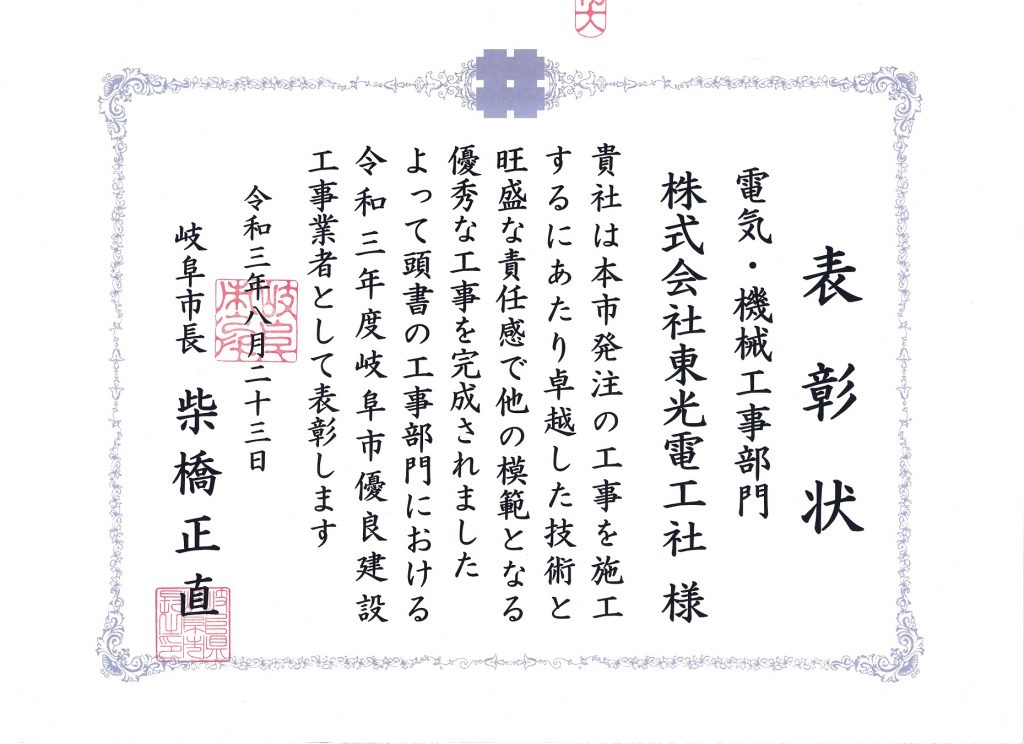 表彰状
電気・機械工事部門
株式会社東光電工社 様
貴社は本市発注の工事を施工
するにあたり卓越した技術と
旺盛な責任感で他の模範となる
優秀な工事を完成されました
よって頭書の工事部門における
令和三年度岐阜市優良建設
工事業者として表彰します
令和三年八月二十三日
岐阜市長 柴橋正直